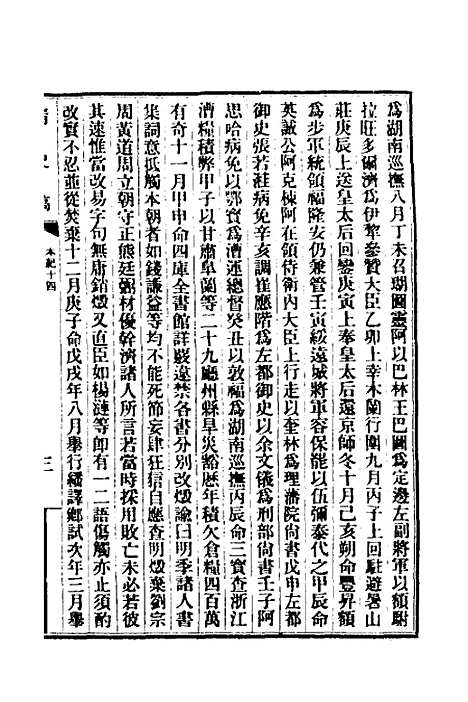 爲湖南巡撫八月丁未召瑚圖靈阿以巴林王巴圖爲定邊左副將軍以額駙
拉旺多爾濟爲伊犂參贊大臣乙卯上幸木蘭行圍九月丙子上回駐避暑山
莊庚辰上送皇太后回鑾庚寅上奉皇太后還京師冬十月己亥朔命豐昇額
爲步軍統領福隆安仍兼管壬寅綏遠城將軍容保罷以伍彌泰代之甲辰命
英誠公阿克棟阿在領侍衛內大臣上行走以奎林爲理藩院尚書戊申左都
御史張若溎病免辛亥調崔應階爲左都御史以余文儀爲刑部尚書壬子阿
思哈病免以鄂寶爲漕運總督癸丑以敦福爲湖南巡撫丙辰命三寶查浙江
漕糧積弊甲子以甘肅皐蘭等二十九廳州縣旱災豁歷年積欠倉糧四百萬
有奇十一月甲申命四庫全書館詳覈違禁各書分別改燬諭曰明季諸人書
集詞意抵觸本朝者如錢謙益等均不能死節妄肆狂狺自應查明燬棄劉宗
周黃道周立朝守正熊廷弼材優幹濟諸人所言若當時採用敗亡未必若彼
其速惟當改易字句無庸銷燬又直臣如楊漣等卽有一二語傷觸亦止須酌
改實不忍並從焚棄十二月庚子命戊戌年八月舉行繙譯鄉試次年三月舉
清史稿
本紀十四
三